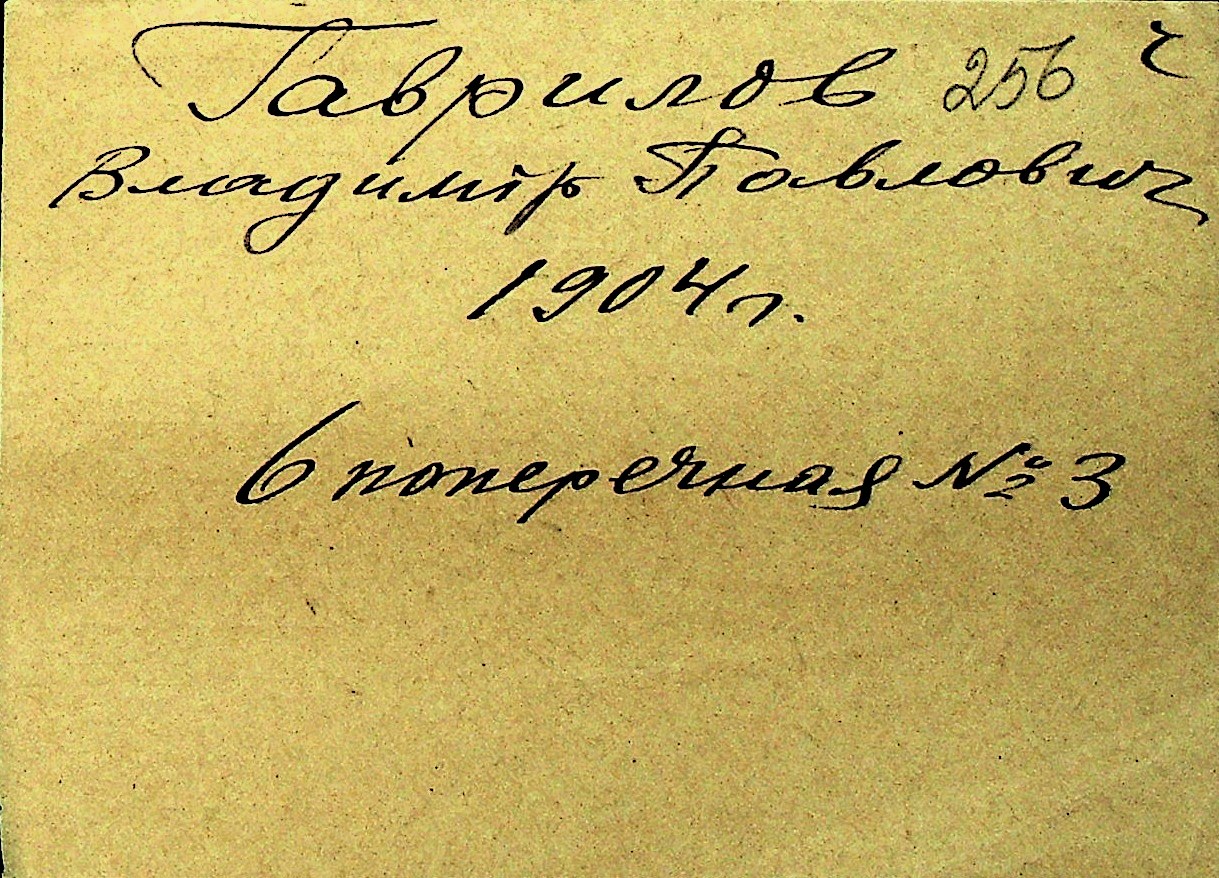 Гаврилов 256 ч
Владимір Павлович
1904 г.
6 поперечная № 3